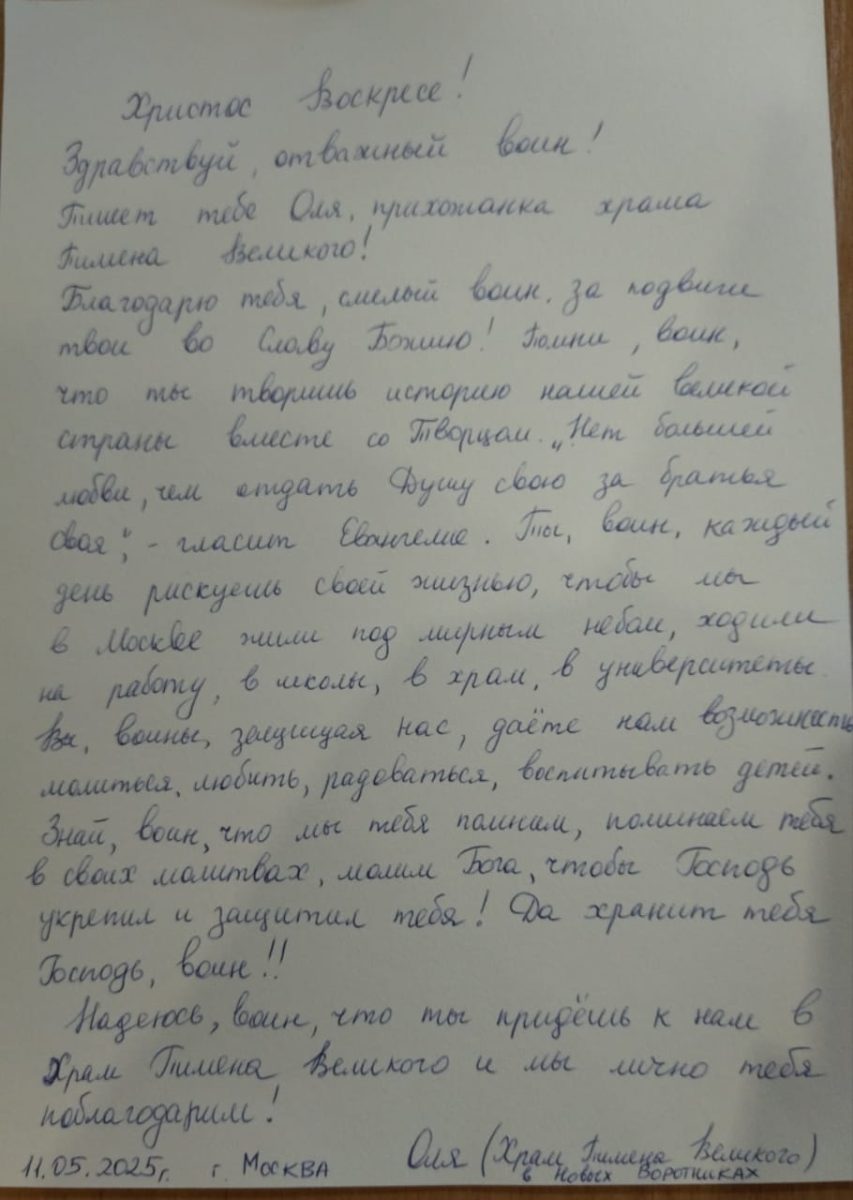 Христос Воскресе!
Здравствуй, отважный воин!
Пишет тебе Оля, прихожанка храма
Пимена Великого!
Благодарю тебя, смелый воин, за подвиги
твои во Славу Божию! Помни, воин,
что ты творишь историю нашей великой
страны вместе со Творцом. „Нет большей
любви, чем отдать Душу свою за братья
своя", - гласит Евангелие. Ты, воин, каждый
день рискуешь своей жизнью, чтобы мы
в Москве жили под мирным небом, ходили
на работу, в школы, в храм, в университеты.
Вы, воины, защищая нас, даёте нам возможность
молиться, любить, радоваться, воспитывать детей.
Знай, воин, что мы тебя помним, поминаем тебя
в своих молитвах, молим Бога, чтобы Господь
укрепил и защитил тебя! Да хранит тебя
Господь, воин!!
Надеюсь, воин, что ты придёшь к нам в
Храм Пимена Великого и мы лично тебя
поблагодарим!
11.05.2025г. г. Москва Оля (Храм Пимена Великого)
в Новых Воротниках